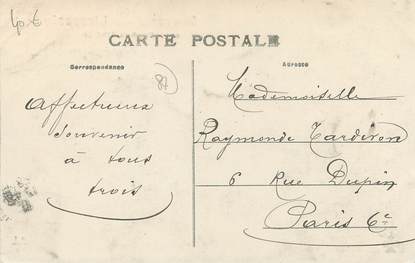 40 €
CARTE POSTALE
Correspondance
Adresse
87
Affectueux
souvenir
à tous
trois
Mademoiselle
Raymonde Tardivon
6 Rue Dupin
Paris 6e